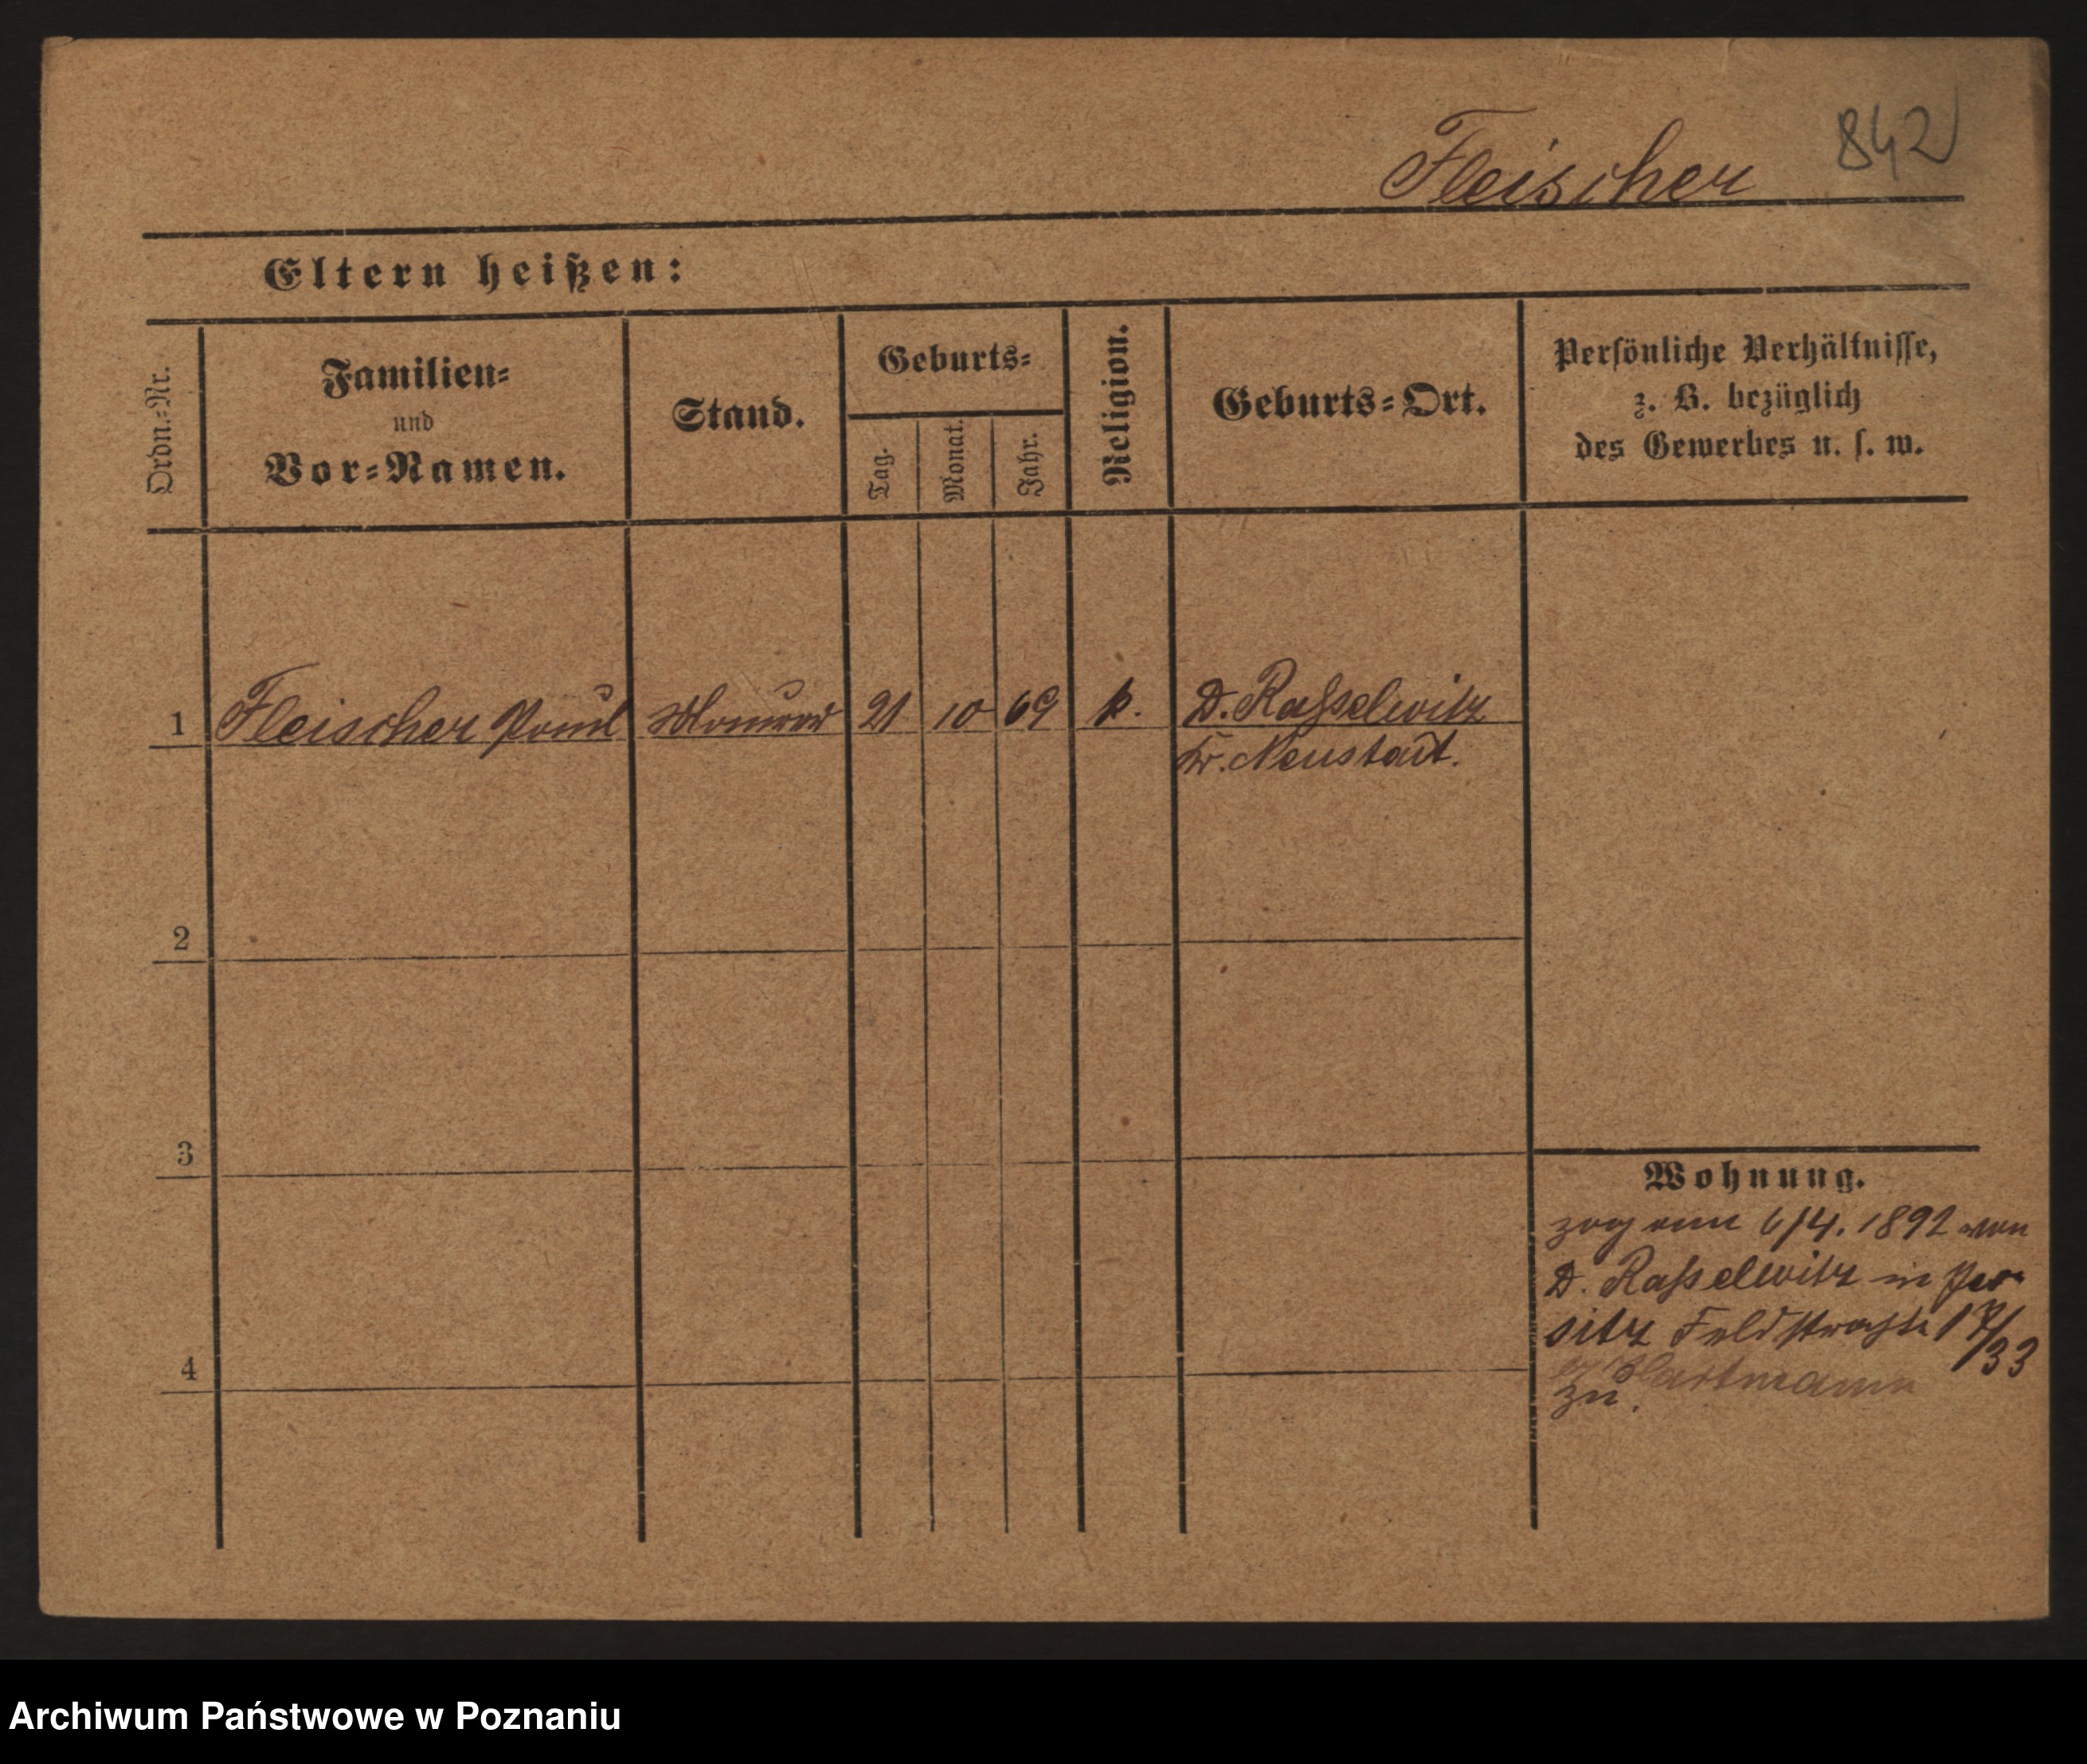 842
Fleischer
Eltern heißen:
Ordn.=Nr.
Familien=
und
Vor=Namen.
Stand.
Geburts=
Tag.
Monat.
Jahr.
Religion.
Geburts=Ort.
Persönliche Verhältnisse,
z. B. bezüglich
des Gewerbes u. s. w.
1 Fleischer Paul Maurer 21 10 69 k. D. Raſselwitz
Kr. Neustadt.
2
3
4
Wohnung.
zog am 6/4. 1892 von
D. Raſselwitz in Jer-
sitz Feldstraße 17/33
Hartmann
zu.
Archiwum Państwowe w Poznaniu